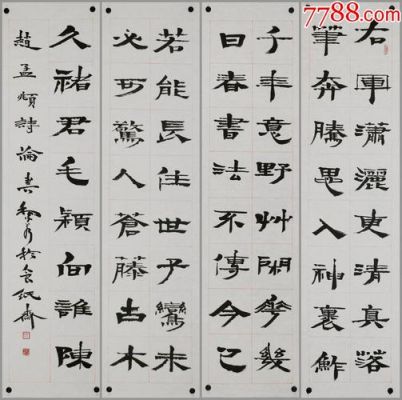 7788.com
右軍瀟灑更清真落
筆奔騰思入神裹鮓
千年意野艸閒華幾
日春書法不傳今已
若能長住世子鸞未
必可驚人蒼藤古木
久褚君毛穎向誰陳
趙孟頫詩論書